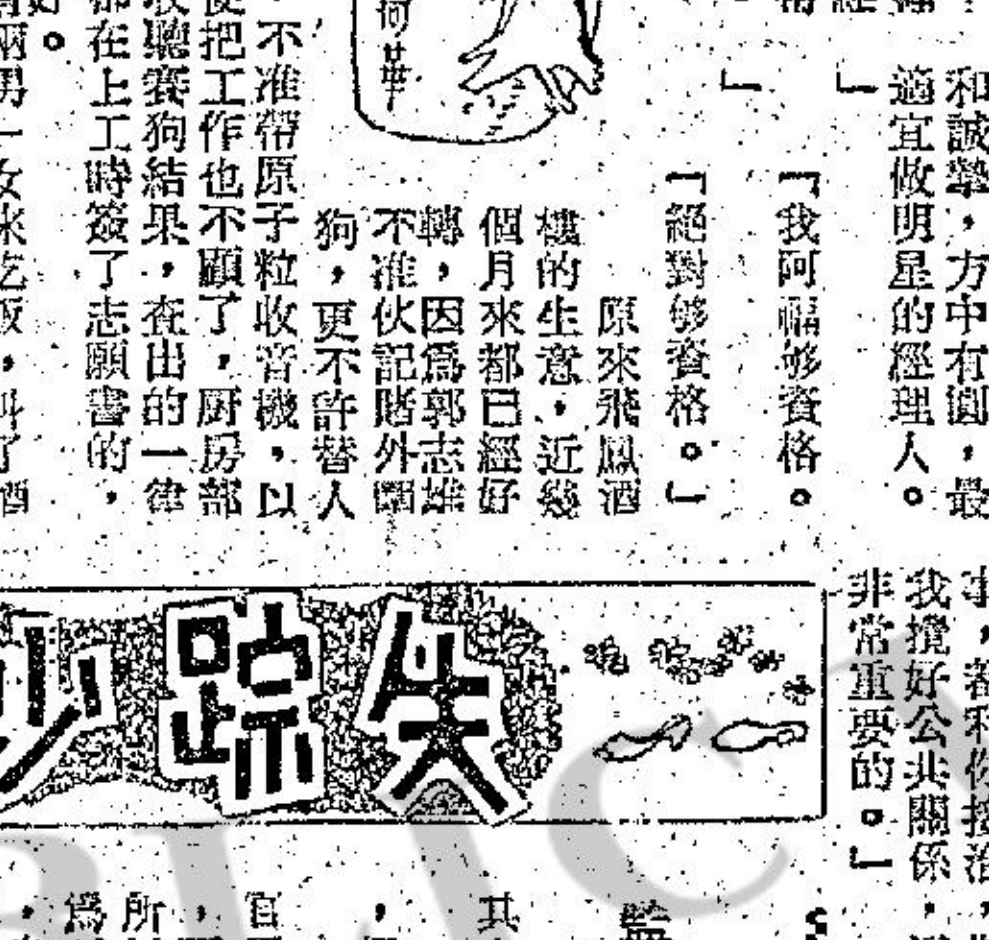 和誠摯，方中有圓，最
適宜做明星的經理人。
」
「我阿福够資格。
」
「絕對够資格。」
原來飛鳳酒
樓的生意，近幾
個月來都已經好
轉，因爲郭志雄
不准伙記賭外圍
狗，更不許替人
不准帶原子粒收音機，以
把工作也不顧了，厨房部
聽賽狗結果，查出的一律
在上工時簽了志願書的，
好。
兩男一女來吃飯，叫了酒
何華
我攪好公共關係
非常重要的。」
失踪
其
，
官
，
所
爲
，